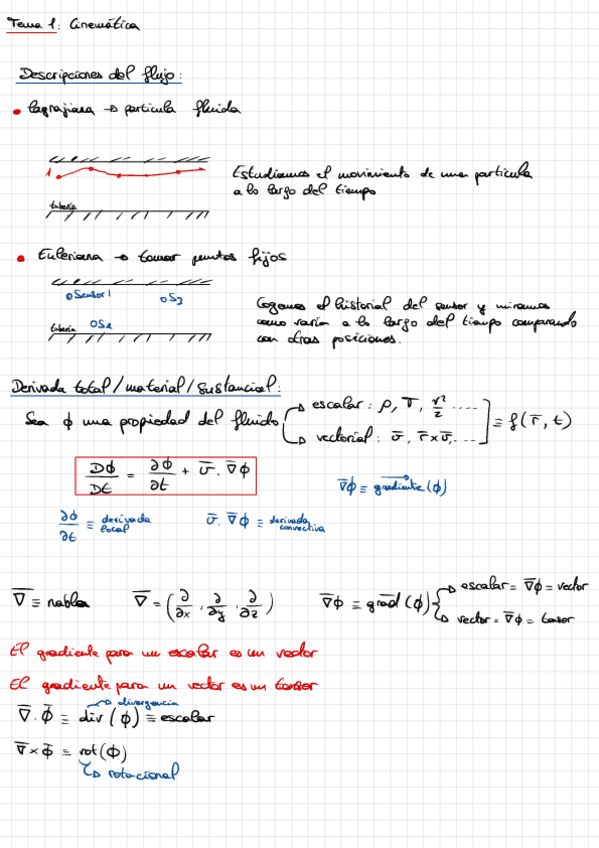 Tema 1: Cinemática
Descripciones del flujo:
• Lagrajiana → particula fluida
1
Estudiamos el movimiento de una particula
a lo largo del tiempo
tubería
• Euleriana → tomar puntos fijos
Sensor 1
S3
S2
tubería
Cogemos el historial del sensor y miramos
como varia a lo largo del tiempo comparando
con otras posiciones.
Derivada total/material/sustancial:
Sea ϕ una propiedad del fluido
→ escalar: ρ, T, v²/2 .....
→ vectorial: v̅, r̅×v̅,....
≡ f(r̅, t)
Dϕ/Dt = ∂ϕ/∂t + v̅ · ∇̅ϕ
∇̅ϕ ≡ gradiente(ϕ)
∂ϕ/∂t ≡ derivada local
v̅ · ∇̅ϕ ≡ derivada convectiva
∇̅ ≡ nabla
∇̅ = (∂/∂x, ∂/∂y, ∂/∂z)
∇̅ϕ ≡ grad(ϕ)
→ escalar = ∇̅ϕ = vector
→ vector = ∇̅ϕ = tensor
El gradiente para un escalar es un vector
El gradiente para un vector es un tensor
→ divergencia
∇̅ · ϕ̅ ≡ div(ϕ) ≡ escalar
∇̅ × ϕ̅ ≡ rot(ϕ)
→ rotacional